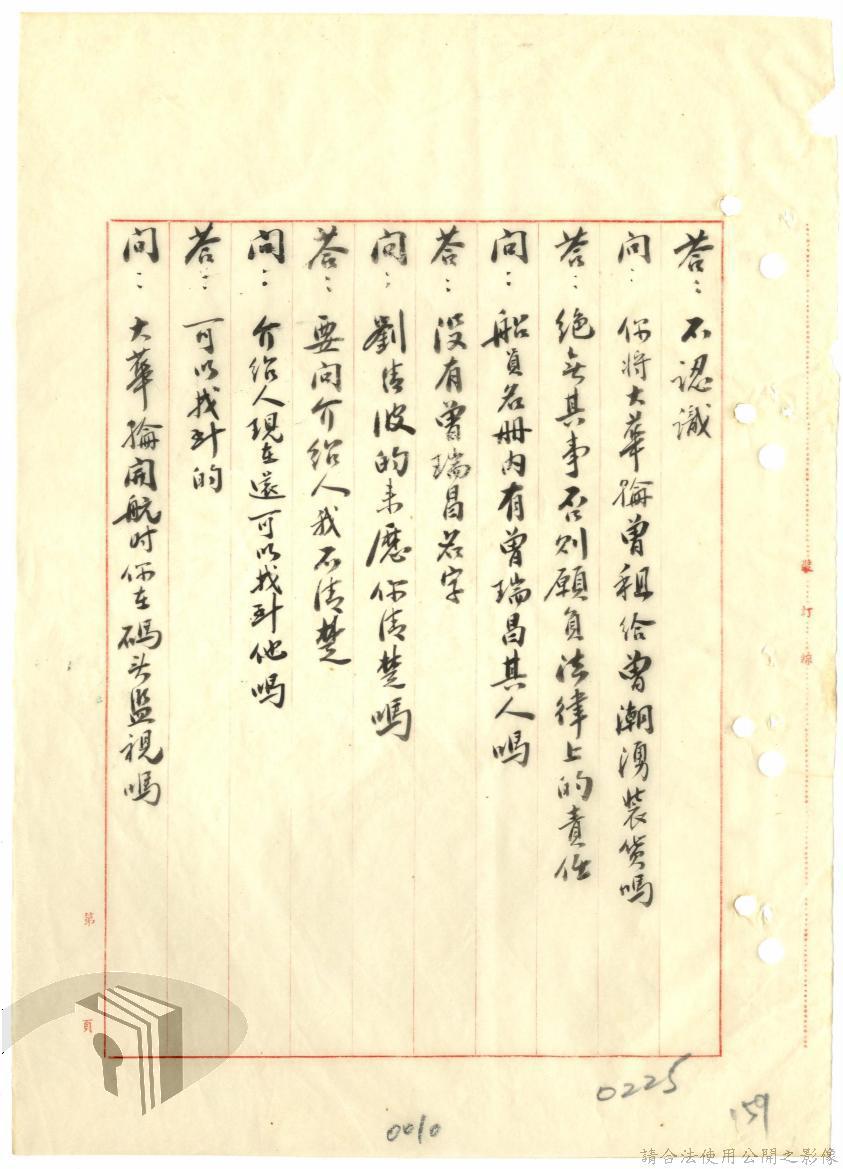 答：不認識
問：你將大華輪曾租給曾潮湧裝货嗎
答：绝無其事否则願負法律上的責任
問：船員名册内有曾瑞昌其人嗎
答：没有曾瑞昌名字
問：劉清波的来歷你清楚嗎
答：要问介绍人我不清楚
問：介绍人現在還可以找到他嗎
答：可以找到的
問：大華輪開航时你在碼头监視嗎
裝訂線
第 頁
0225
0010
159
請合法使用公開之影像